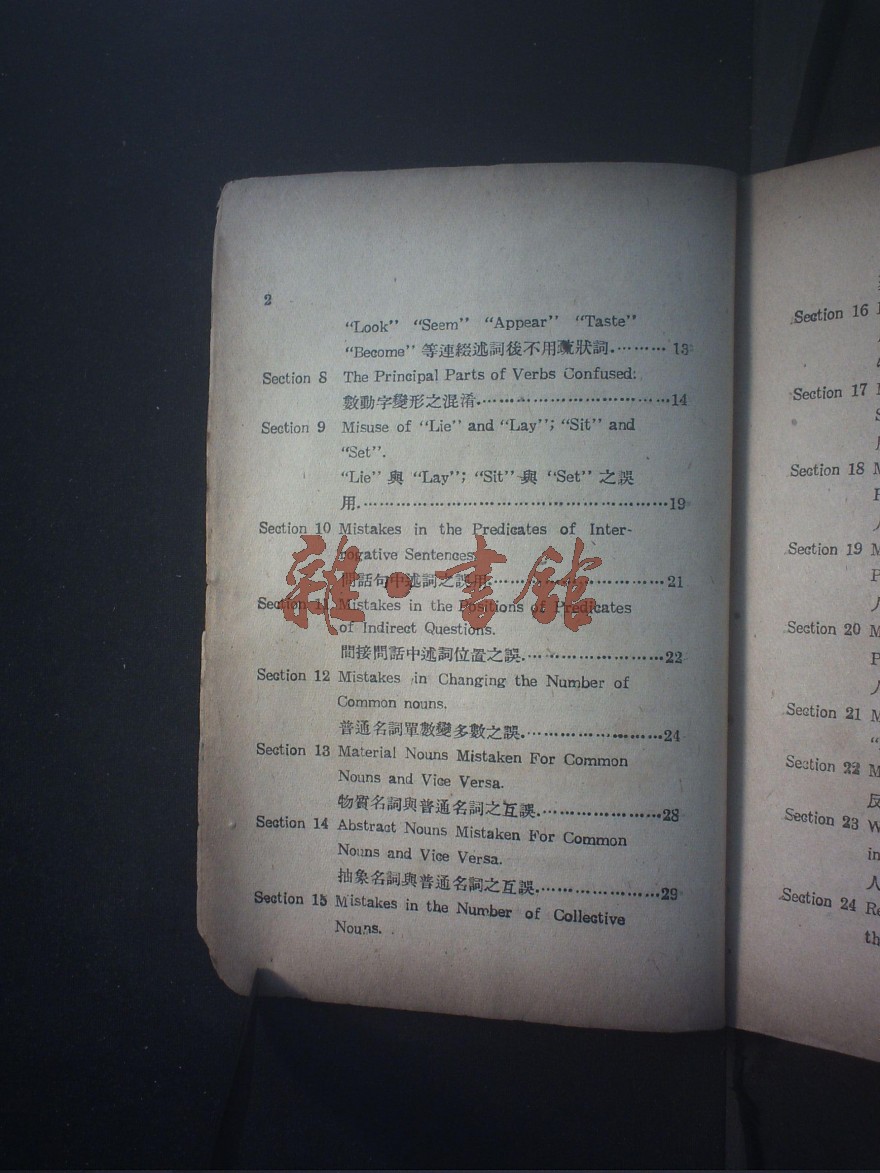 2
“Look” “Seem” “Appear” “Taste”
“Become” 等連綴述詞後不用疏狀詞.………… 13
Section 8 The Principal Parts of Verbs Confused:
數動字變形之混淆.………………………………14
Section 9 Misuse of “Lie” and “Lay”; “Sit” and
“Set”.
“Lie” 與 “Lay”; “Sit” 與 “Set” 之誤
用.……………………………………………………19
Section 10 Mistakes in the Predicates of Inter-
rogative Sentences.
問話句中述詞之誤用.……………………………21
Section 11 Mistakes in the Positions of Predicates
of Indirect Questions.
間接問話中述詞位置之誤.………………………22
Section 12 Mistakes in Changing the Number of
Common nouns.
普通名詞單數變多數之誤.………………………24
Section 13 Material Nouns Mistaken For Common
Nouns and Vice Versa.
物質名詞與普通名詞之互誤.……………………28
Section 14 Abstract Nouns Mistaken For Common
Nouns and Vice Versa.
抽象名詞與普通名詞之互誤.……………………29
Section 15 Mistakes in the Number of Collective
Nouns.
雜·書館
Section 16
Section 17
Section 18
Section 19
Section 20
Section 21
Section 22
反
Section 23
in
人
Section 24 Re
th